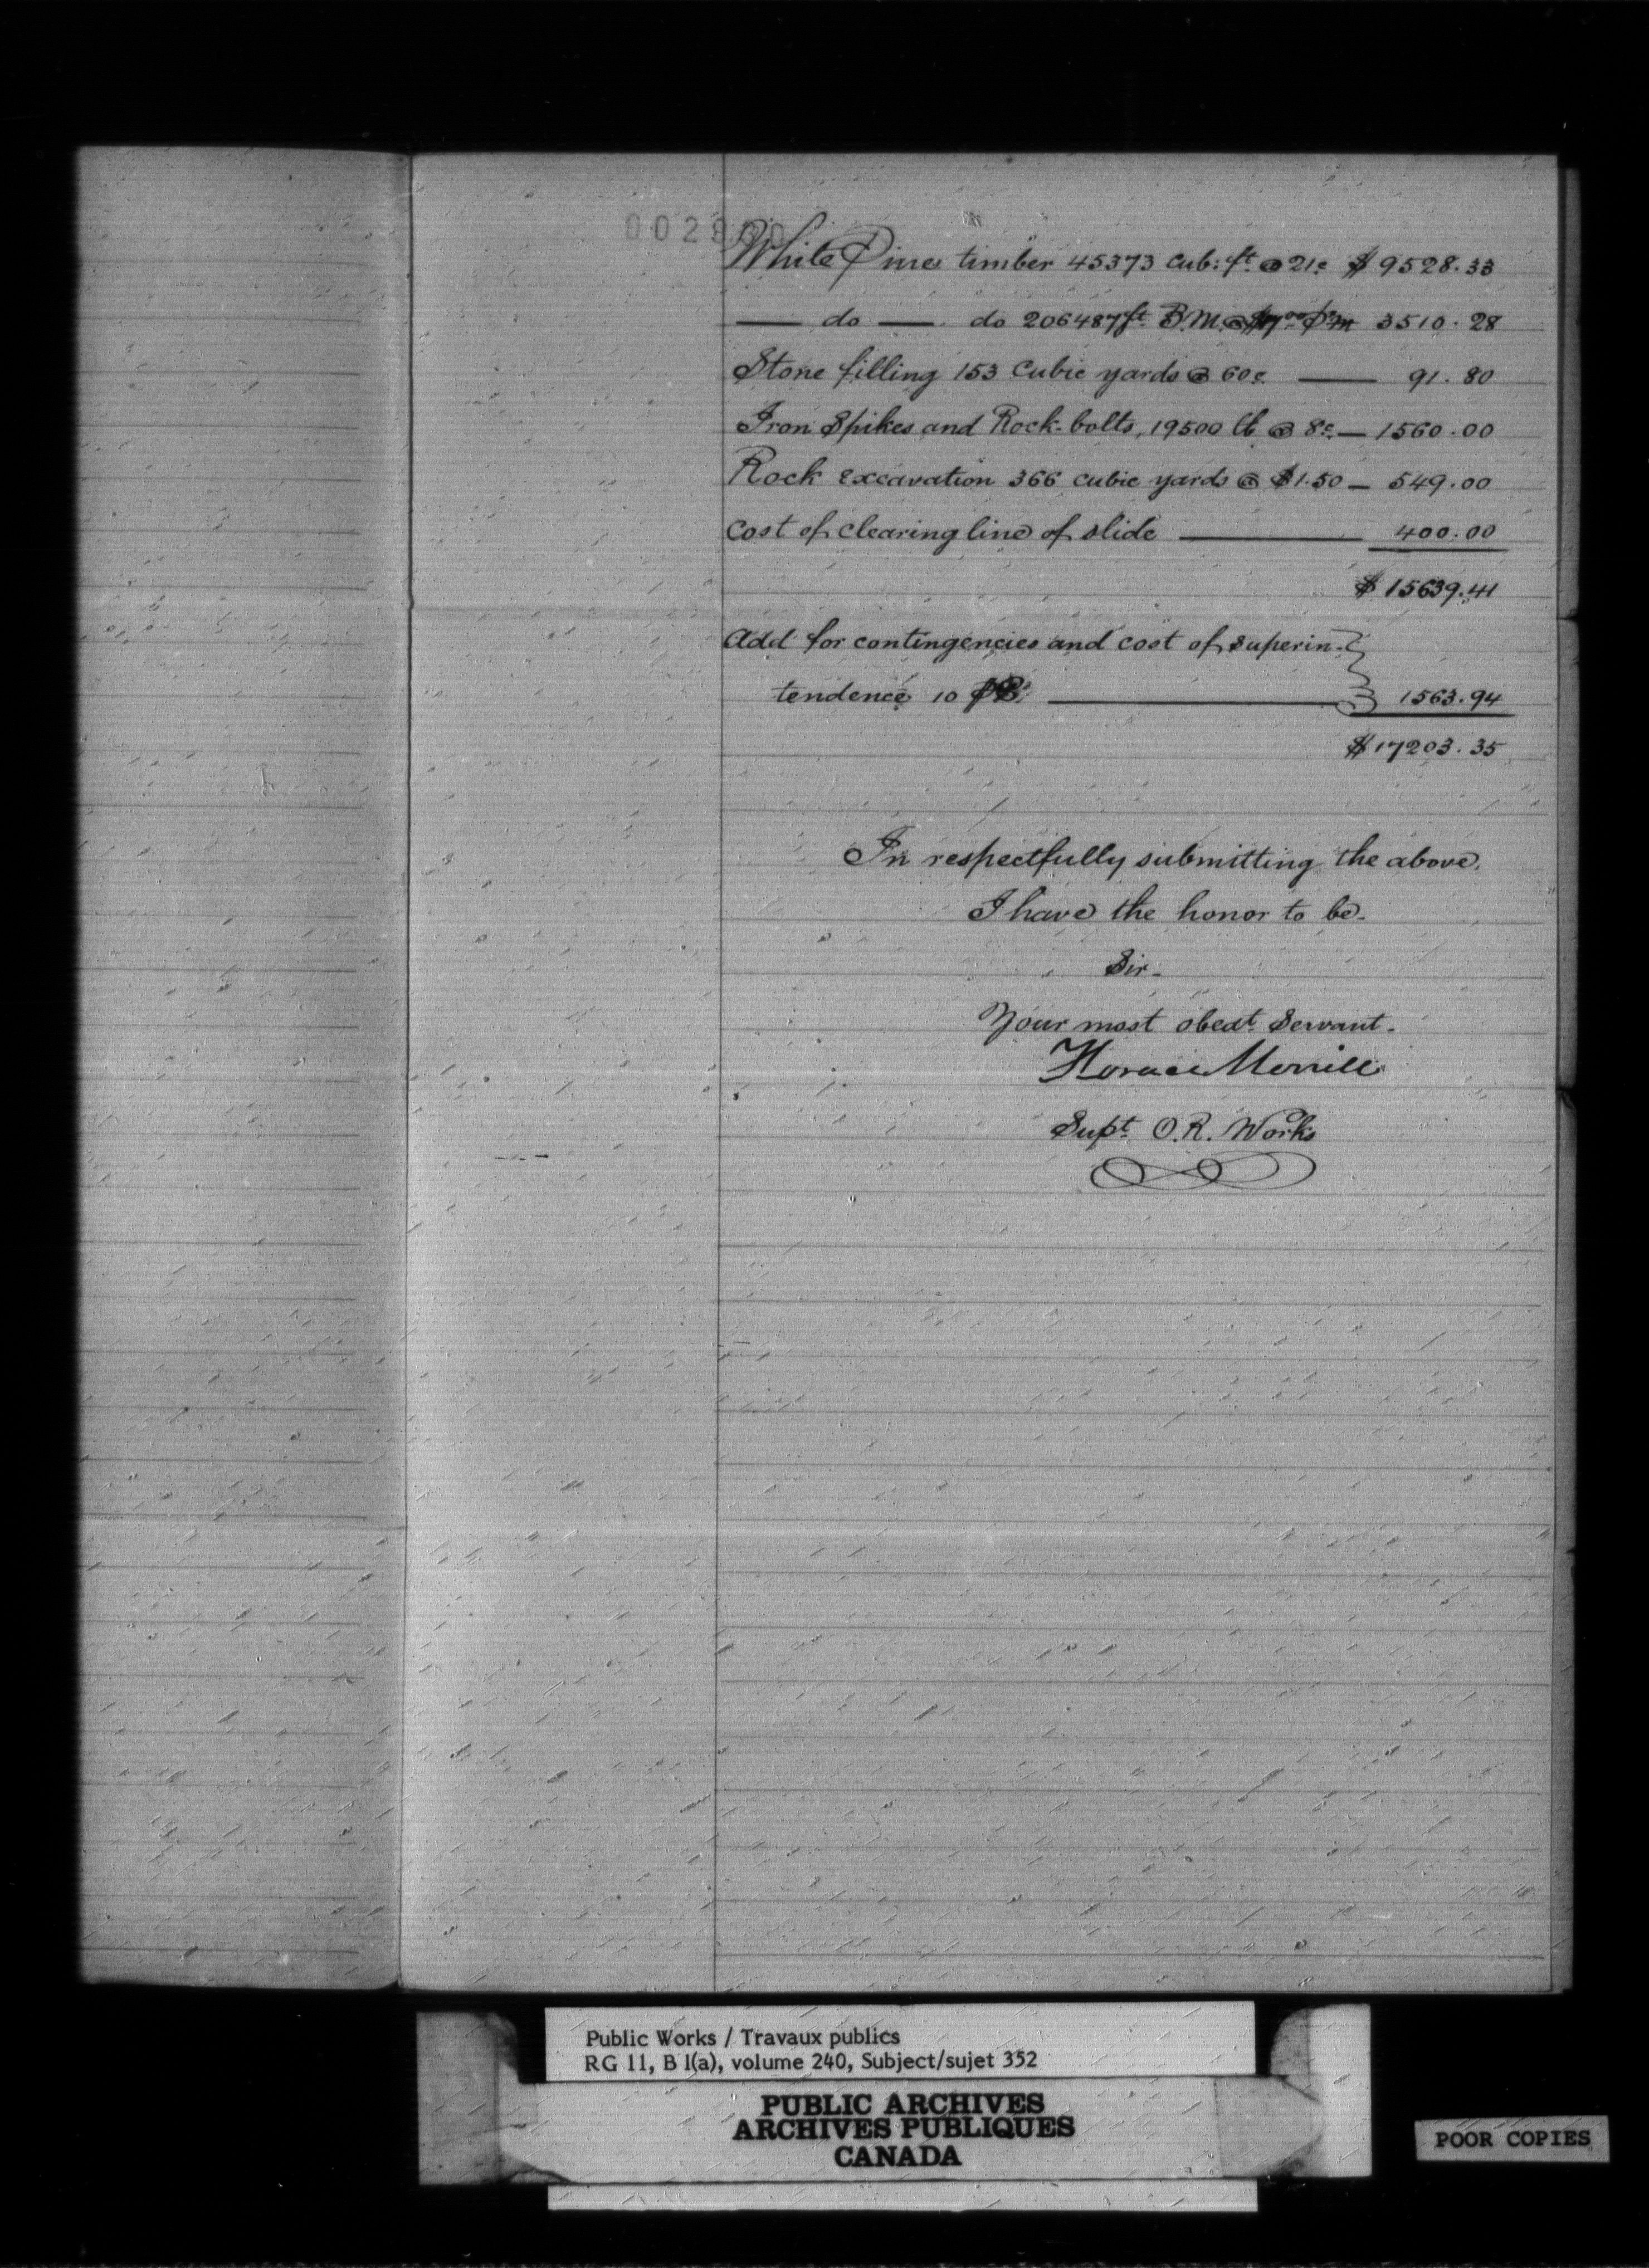 White Pine timber 45373 cub: ft. @ 21c $ 9528.33
do do 206487 ft. B.M. @ $17.00 Pr m 3510.28
Stone filling 153 Cubic yards @ 60c 91.80
Iron Spikes and Rock-bolts, 19500 lb @ 8c 1560.00
Rock excavation 366 cubic yards @ $1.50 549.00
Cost of clearing line of slide 400.00
$ 15639.41
Add for contingencies and cost of superin-
tendence 10 1563.94
$ 17203.35
In respectfully submitting the above,
I have the honor to be.
Sir.
Your most obedt. Servant.
Horace Merrill
Supt. O.R. Works
Public Works / Travaux publics
RG 11, B 1(a), volume 240, Subject/sujet 352
PUBLIC ARCHIVES
ARCHIVES PUBLIQUES
CANADA
POOR COPIES